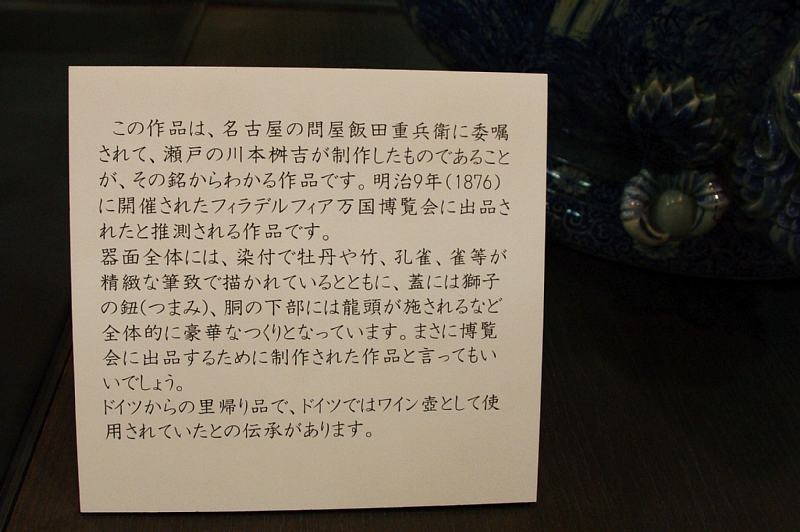 この作品は、名古屋の問屋飯田重兵衛に委嘱
されて、瀬戸の川本桝吉が制作したものであること
が、その銘からわかる作品です。明治9年(1876)
に開催されたフィラデルフィア万国博覧会に出品さ
れたと推測される作品です。
器面全体には、染付で牡丹や竹、孔雀、雀等が
精緻な筆致で描かれているとともに、蓋には獅子
の鈕(つまみ)、胴の下部には龍頭が施されるなど
全体的に豪華なつくりとなっています。まさに博覧
会に出品するために制作された作品と言ってもい
いでしょう。
ドイツからの里帰り品で、ドイツではワイン壺として使
用されていたとの伝承があります。